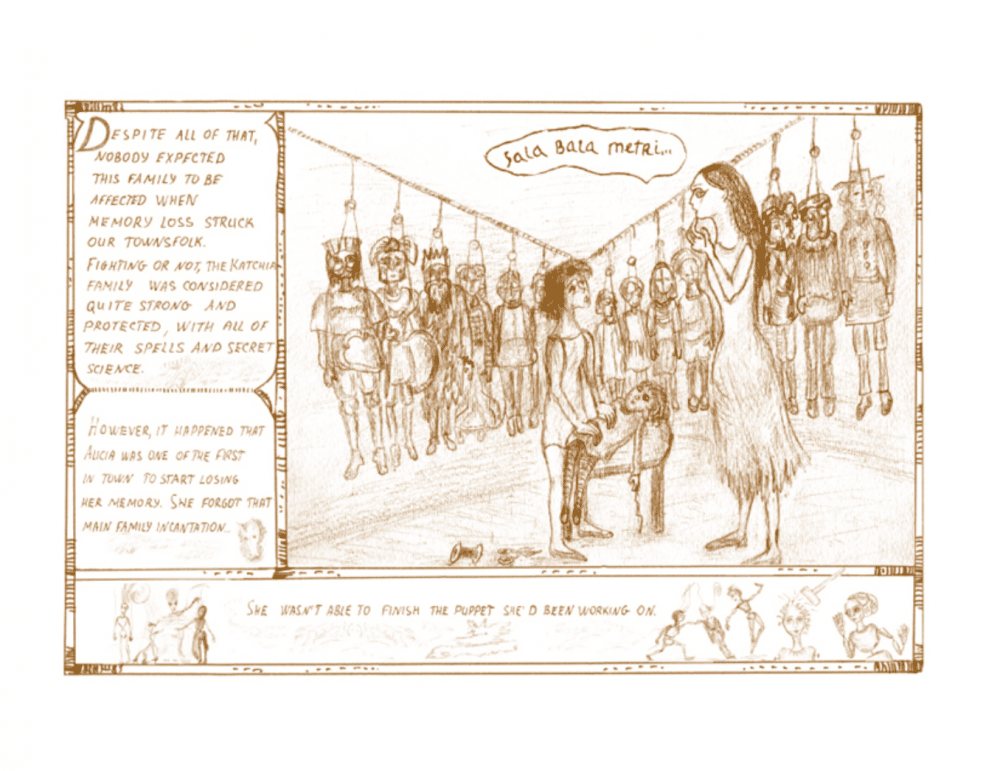 DESPITE ALL OF THAT,
NOBODY EXPECTED
THIS FAMILY TO BE
AFFECTED WHEN
MEMORY LOSS STRUCK
OUR TOWNSFOLK.
FIGHTING OR NOT, THE KATCHIA
FAMILY WAS CONSIDERED
QUITE STRONG AND
PROTECTED, WITH ALL OF
THEIR SPELLS AND SECRET
SCIENCE.
HOWEVER, IT HAPPENED THAT
ALICIA WAS ONE OF THE FIRST
IN TOWN TO START LOSING
HER MEMORY. SHE FORGOT THAT
MAIN FAMILY INCANTATION...
Sala Bala metri...
SHE WASN'T ABLE TO FINISH THE PUPPET SHE'D BEEN WORKING ON.